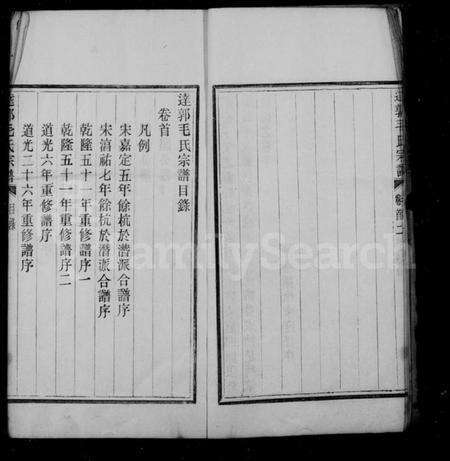 達郭毛氏宗譜目錄
卷首
凡例
宋嘉定五年餘杭於潛派合譜序
宋淳祐七年餘杭於潛派合譜序
乾隆五十一年重修譜序一
乾隆五十一年重修譜序二
道光六年重修譜序
道光二十六年重修譜序
達郭毛氏宗譜
目錄
FamilySearch